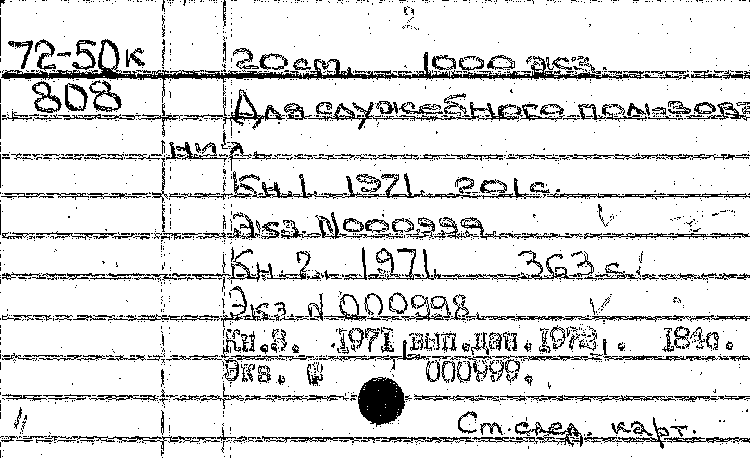 2
72-50к 20см. 1000 экз.
808 Для служебного пользова
ния.
Кн.1. 1971. 201с.
Экз. N000999.
Кн.2. 1971. 363с.
Экз. N 000998.
Кн.3. 1971, вып.дан.1972. 184с.
Экз. № 000999.
Ст.след. карт.